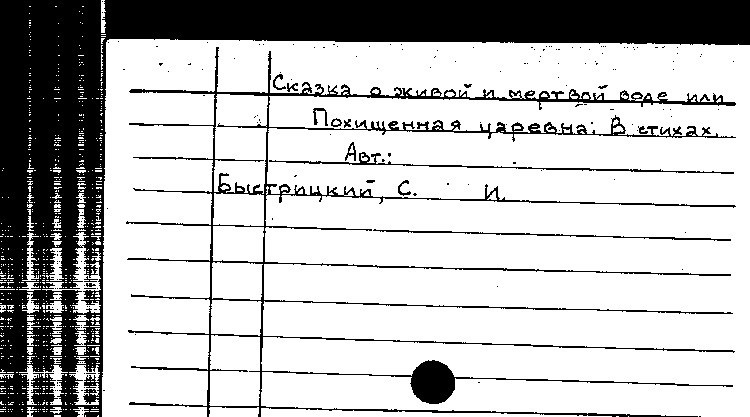 Сказка о живой и мертвой воде или
Похищенная царевна: В стихах.
Авт.:
Быстрицкий, С. И.